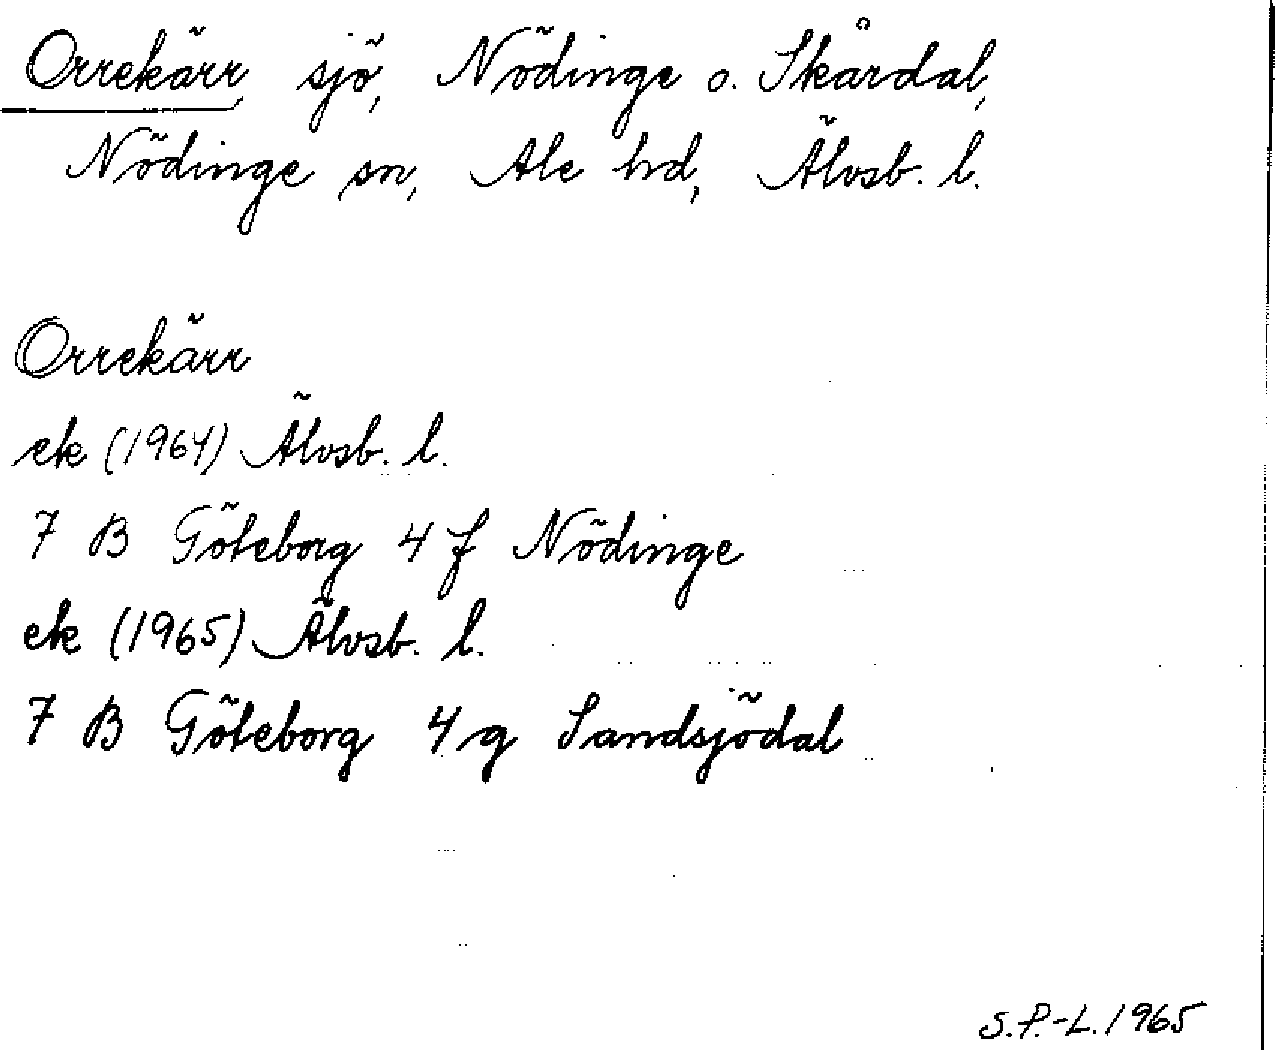 Orrekärr, sjö, Nödinge o. Skårdal,
Nödinge sn, Ale hd, Älvsb. l.
Orrekärr
ek (1964) Älvsb. l.
7 B Göteborg 4 f Nödinge
ek (1965) Älvsb. l.
7 B Göteborg 4 g Sandsjödal
S.P.-L. 1965